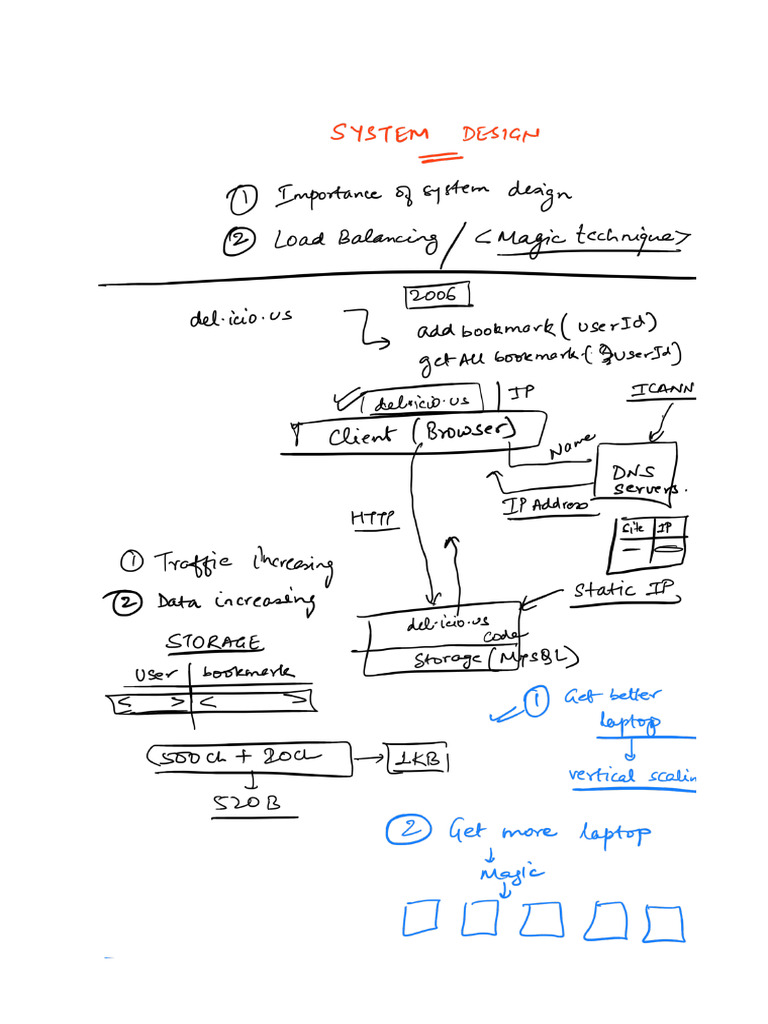 SYSTEM DESIGN
① Importance of system design
② Load Balancing / <Magic technique>
2006
del.icio.us
add bookmark (userId)
get All bookmark (userId)
del.icio.us | IP
ICANN
Client (Browser)
Name
DNS
servers.
IP Address
HTTP
Site | IP
① Traffic increasing
② Data increasing
Static IP
del.icio.us
code
Storage (MySQL)
STORAGE
user | bookmark
< > < >
① Get better
laptop
vertical scalin
500ch + 20ch → 1KB
520B
② Get more laptop
Magic